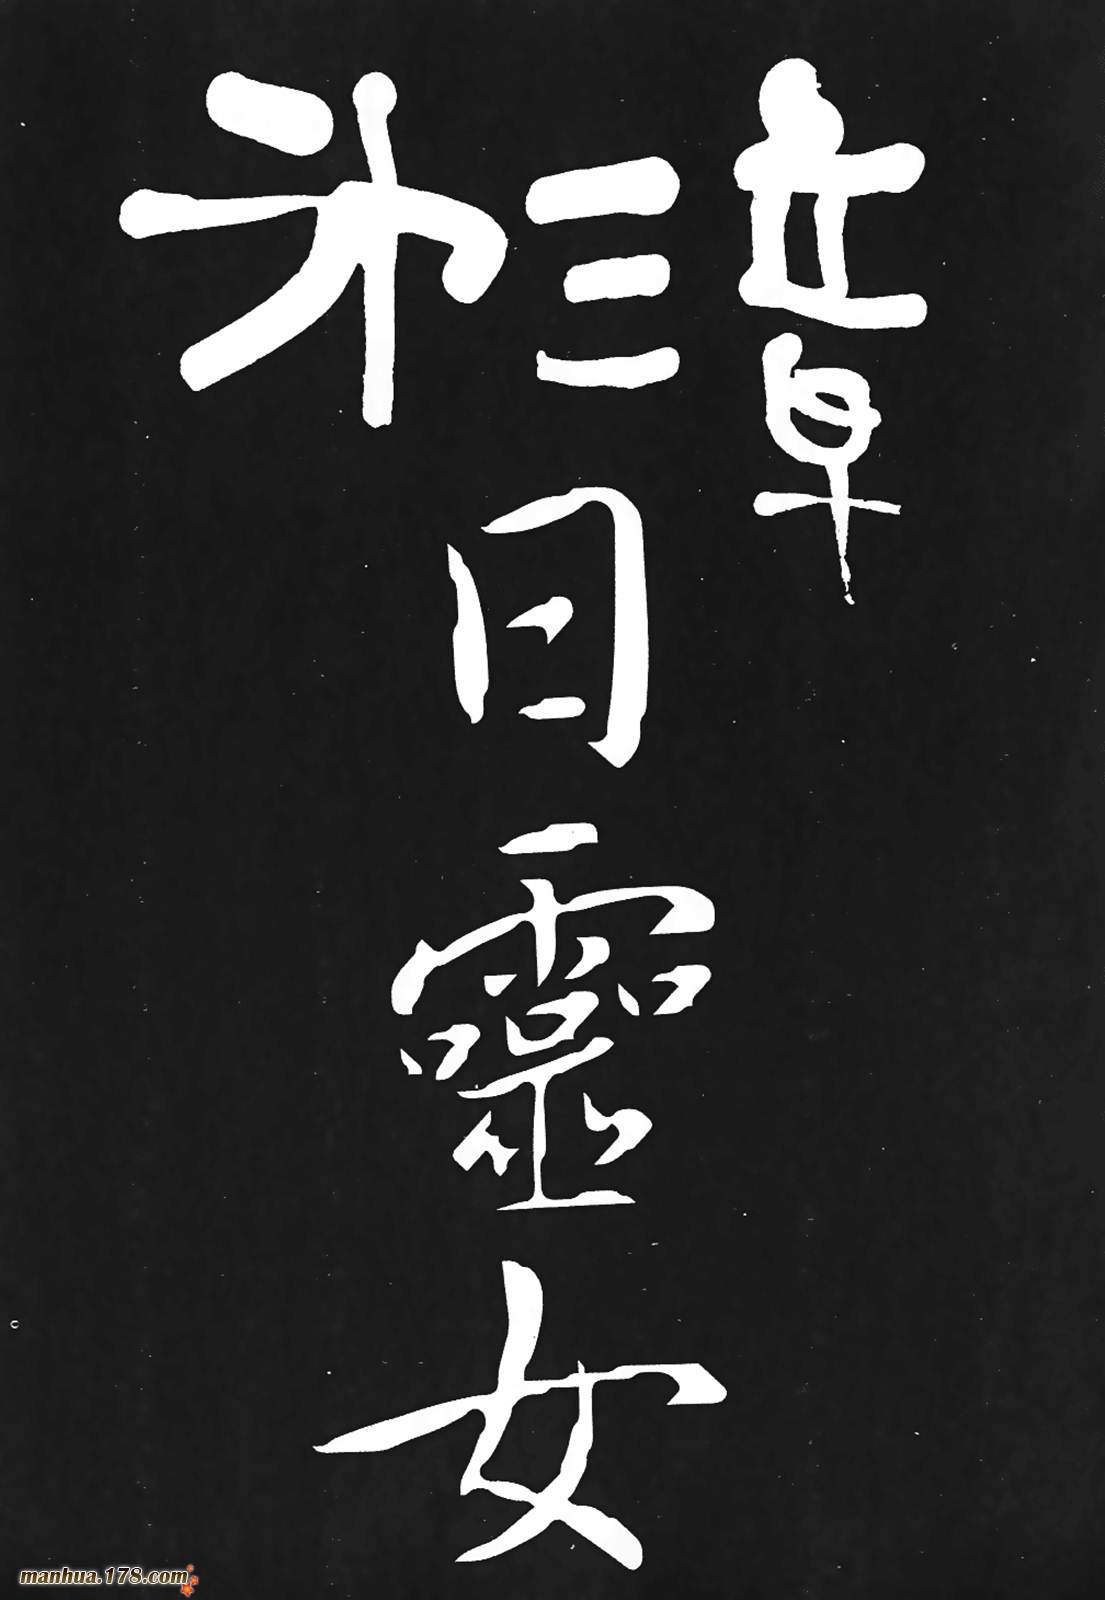 第三章
日靈女
manhua.178.com